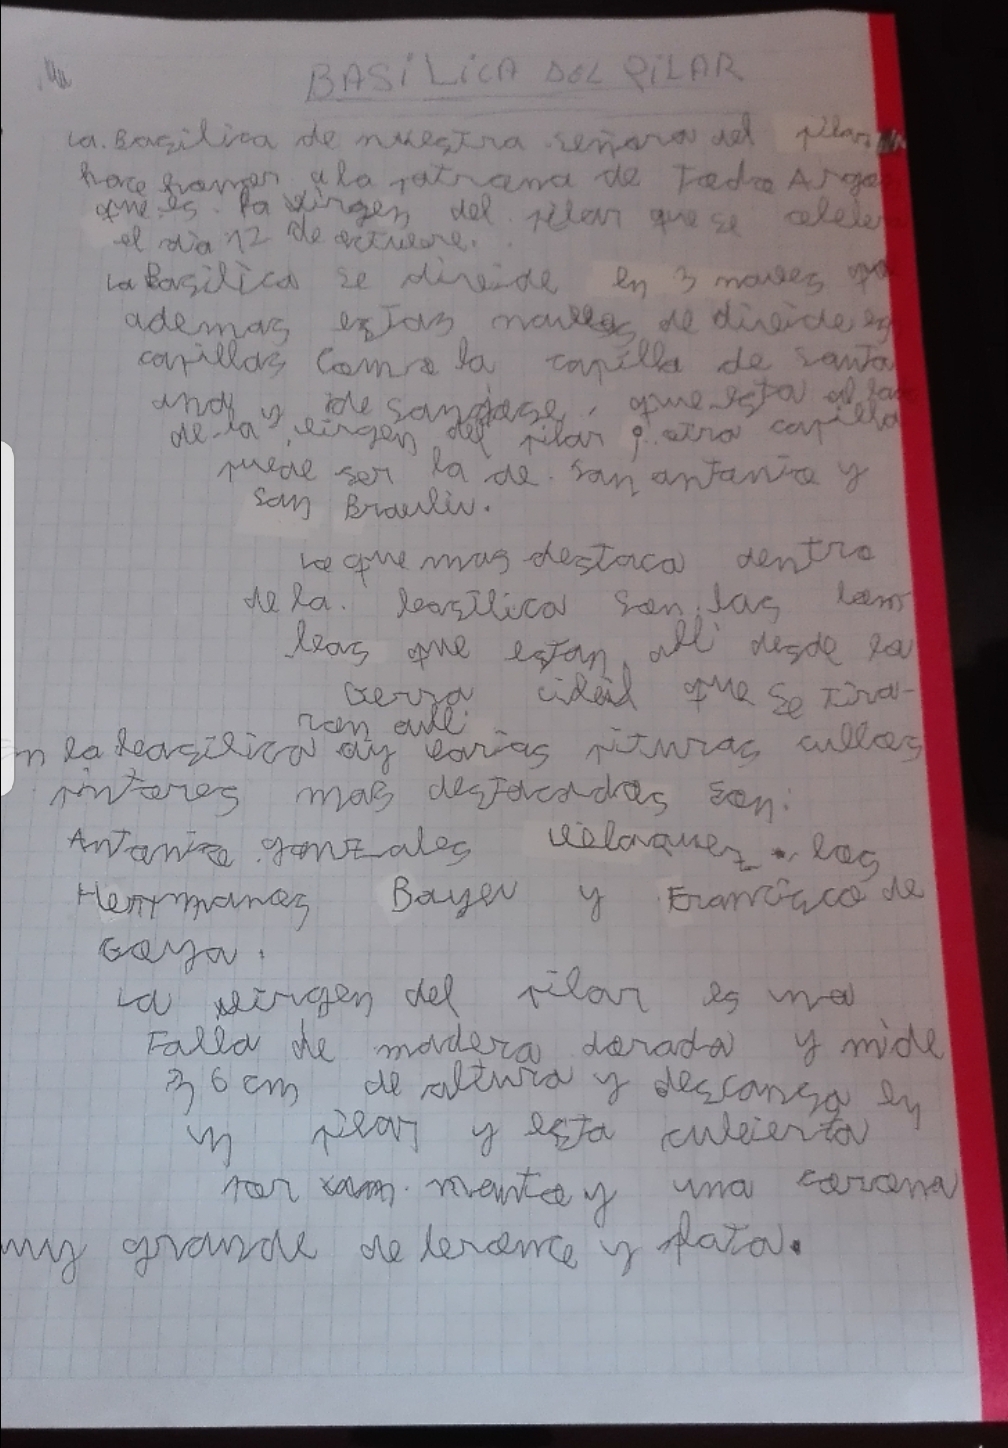 BASILICA DEL PILAR
La Basilica de nuestra señora del pilar
hace honor a la patrona de Todo Arago
que es la virgen del pilar que se celebr
el dia 12 de octubre.
La Basilica se divide en 3 naves que
ademas estas naves se divide en
capillas Como la capilla de Santa
ana y de San jose, que esta al lado
de la virgen del pilar y otra capilla
puede ser la de San antonio y
San Braulio.
Lo que mas destaca dentro
de la basilica son las bom
bas que estan alli desde la
Gerra cibil que se tira-
ron alli
n la basilica ay varias pituras cullos
pintores mas destacados son:
Antonio gonzales Velazquez los
Hermanos Bayeu y Francisco de
Goya.
La virgen del pilar es una
Talla de madera dorada y mide
36 cm de altura y descansa en
un pilar y esta cubierta
por manto y una corona
muy grande de bronce y plata.